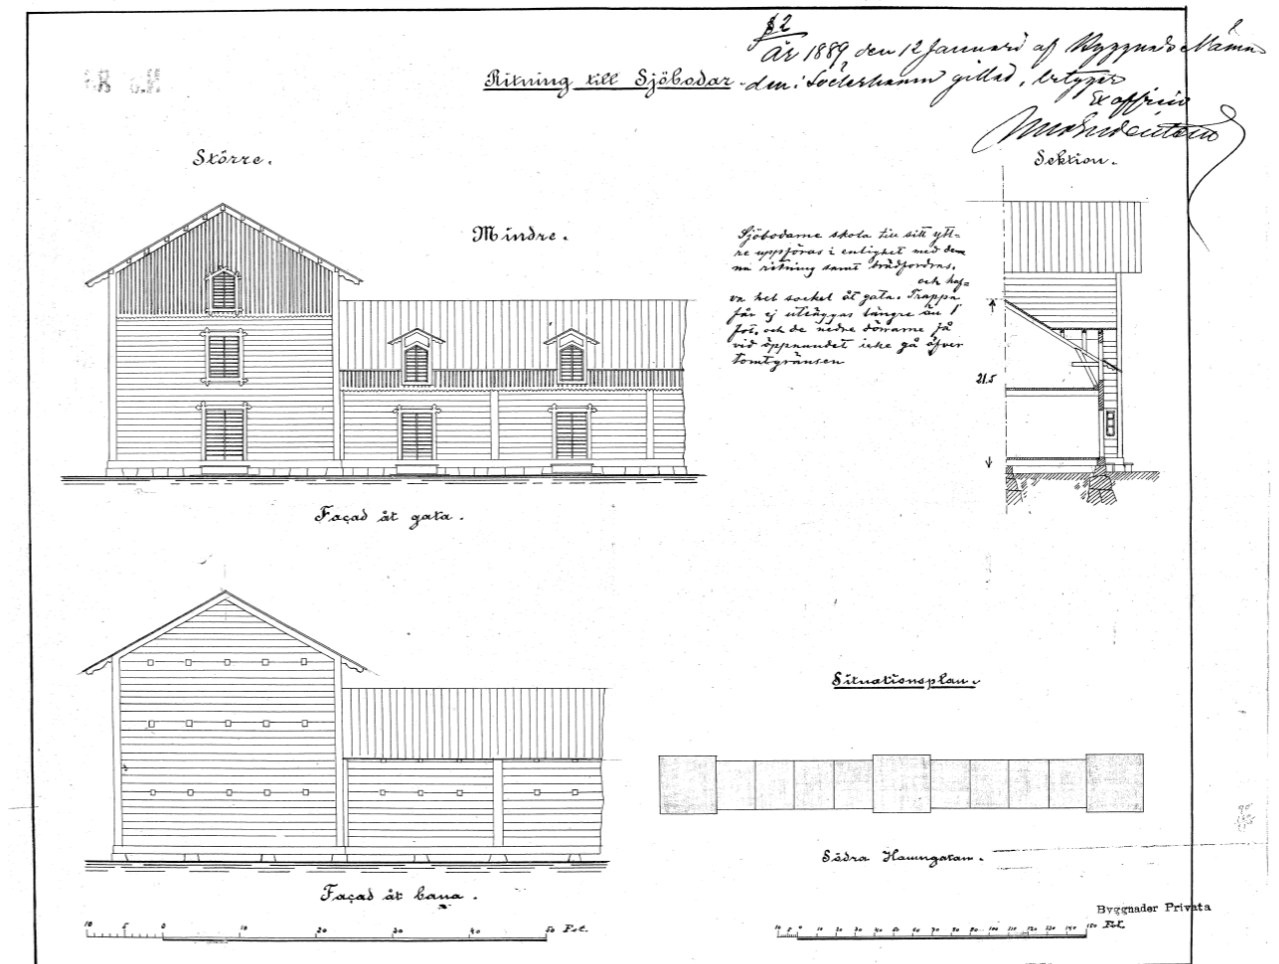 §2
År 1889 den 12 Januari af Byggnads Nämn
den i Söderhamn gillad, betygar
Ex officio
Ritning till Sjöbodar
Större.
Mindre.
Sektion.
Sjöbodarne skola till sitt ytt-
re uppföras i enlighet med den-
na ritning samt brädfordras,
och haf-
va hel sockel åt gata. Trappa
får ej utläggas längre än 1
fot, och de nedre dörrarne få
vid öppnandet icke gå öfver
tomtgränsen
21.5
Façad åt gata.
Situationsplan.
Södra Hamngatan.
Façad åt bana.
Byggnader Privata
10 5 0 10 20 30 40 50 Fot.
10 5 0 10 20 30 40 50 60 70 80 90 100 110 120 130 140 150 Fot.